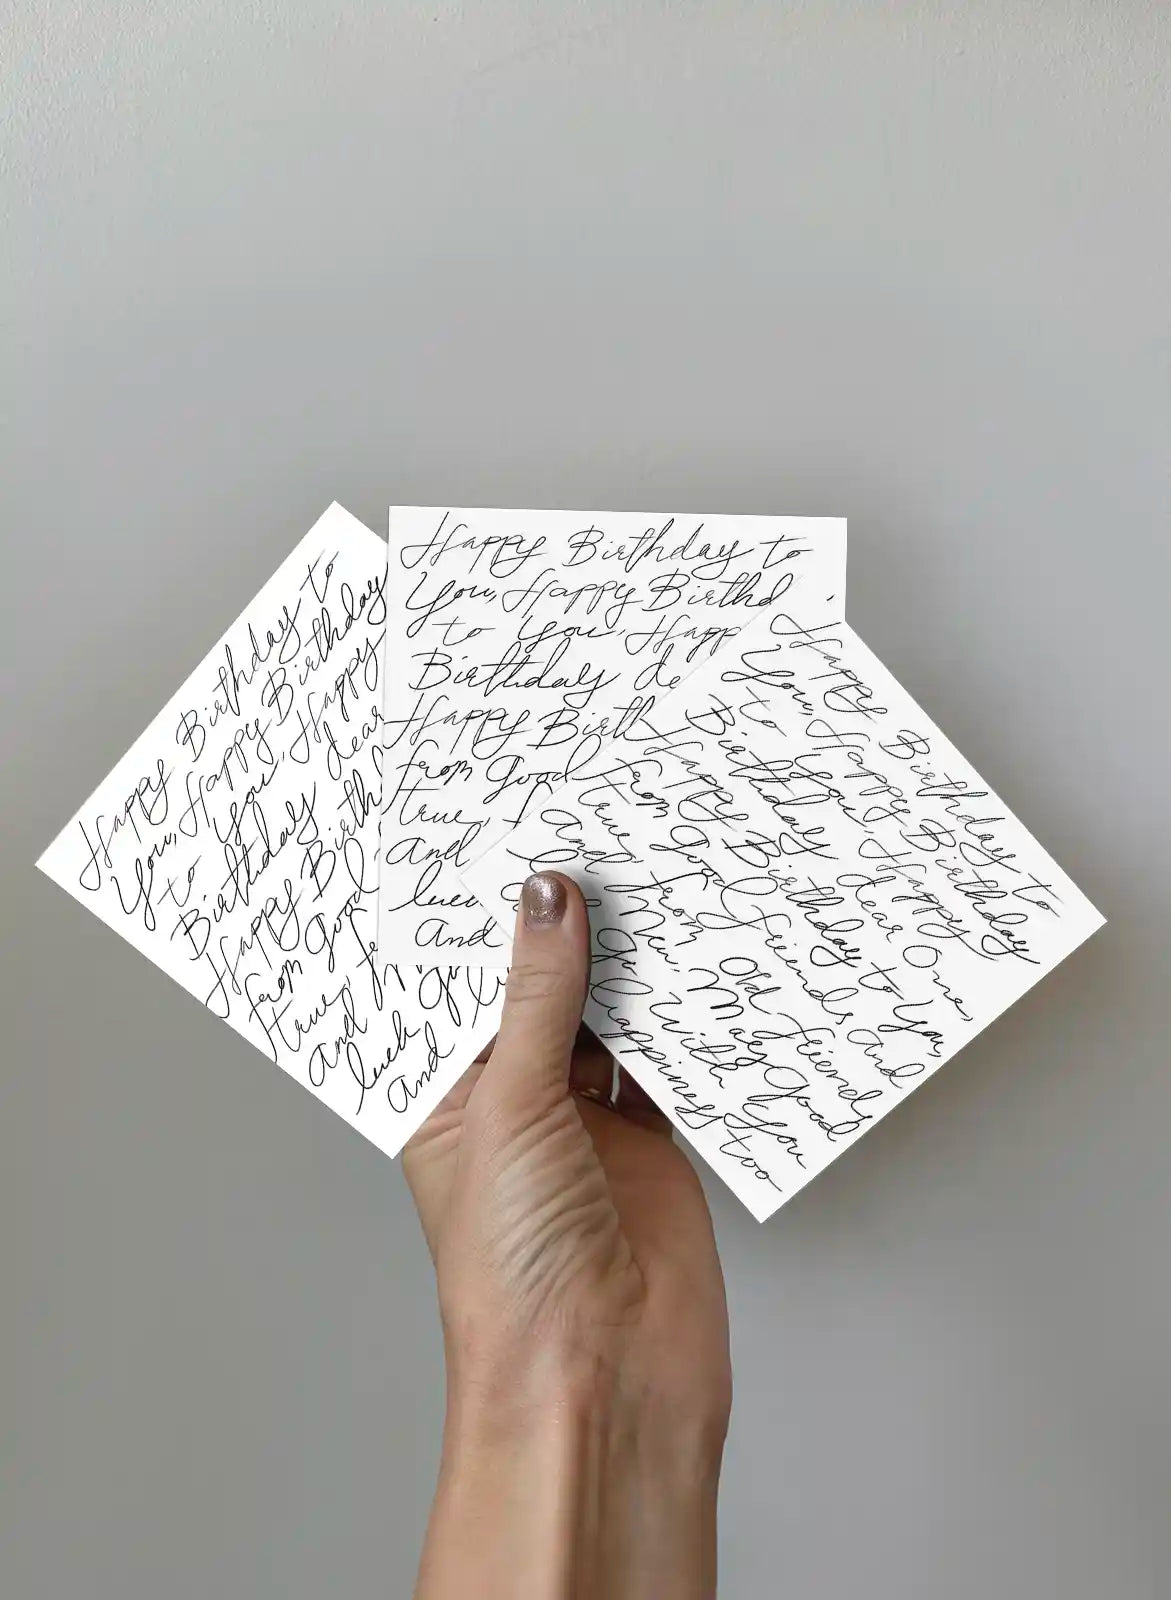 Happy Birthday to
You, Happy Birthday
to You, Happy
Birthday dear
Happy Birth
from Good
true, f
And
luck
And
Happy Birthday to
You, Happy Birthd
to You, Happ
Birthday de
Happy Birth
from Good
true,
And
luc
And
Happy Birthday to
You, Happy Birthday
to You, Happy
Birthday dear One,
Happy Birthday to You,
from Good friends And
true, from Old friends
And New, May Good
go With You
Happiness too